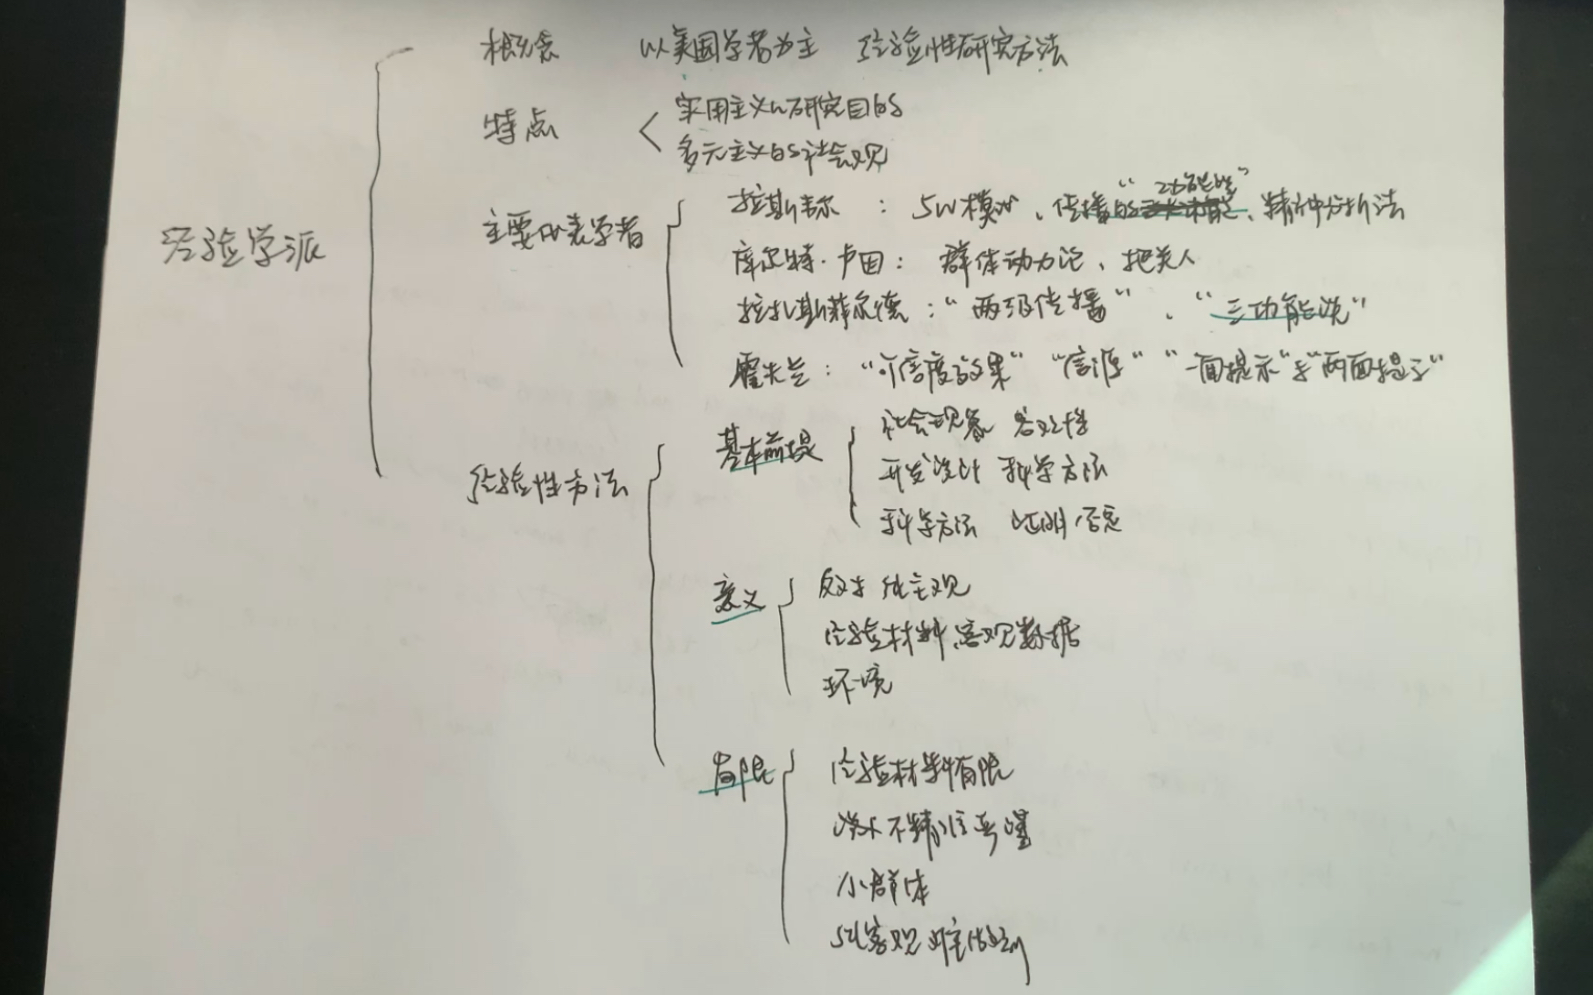 经验学派
概念 以美国学者为主 经验性研究方法
特点
实用主义的研究目的
多元主义的社会观
主要代表学者
拉斯韦尔：5W模式、传播的"功能", 精神分析法
库尔特·卢因：群体动力论、把关人
拉扎斯菲尔德："两级传播"、"三功能说"
霍夫兰："可信度效果""信源""一面提示"与"两面提示"
经验性方法
基本前提
社会现象 客观性
开发设计 科学方法
科学方法 证明/否定
意义
反对 纯主观
经验材料、客观数据
环境
局限
经验材料有限
不精准
小群体
纯客观 难做到